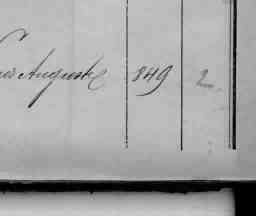 Auguste 849 2